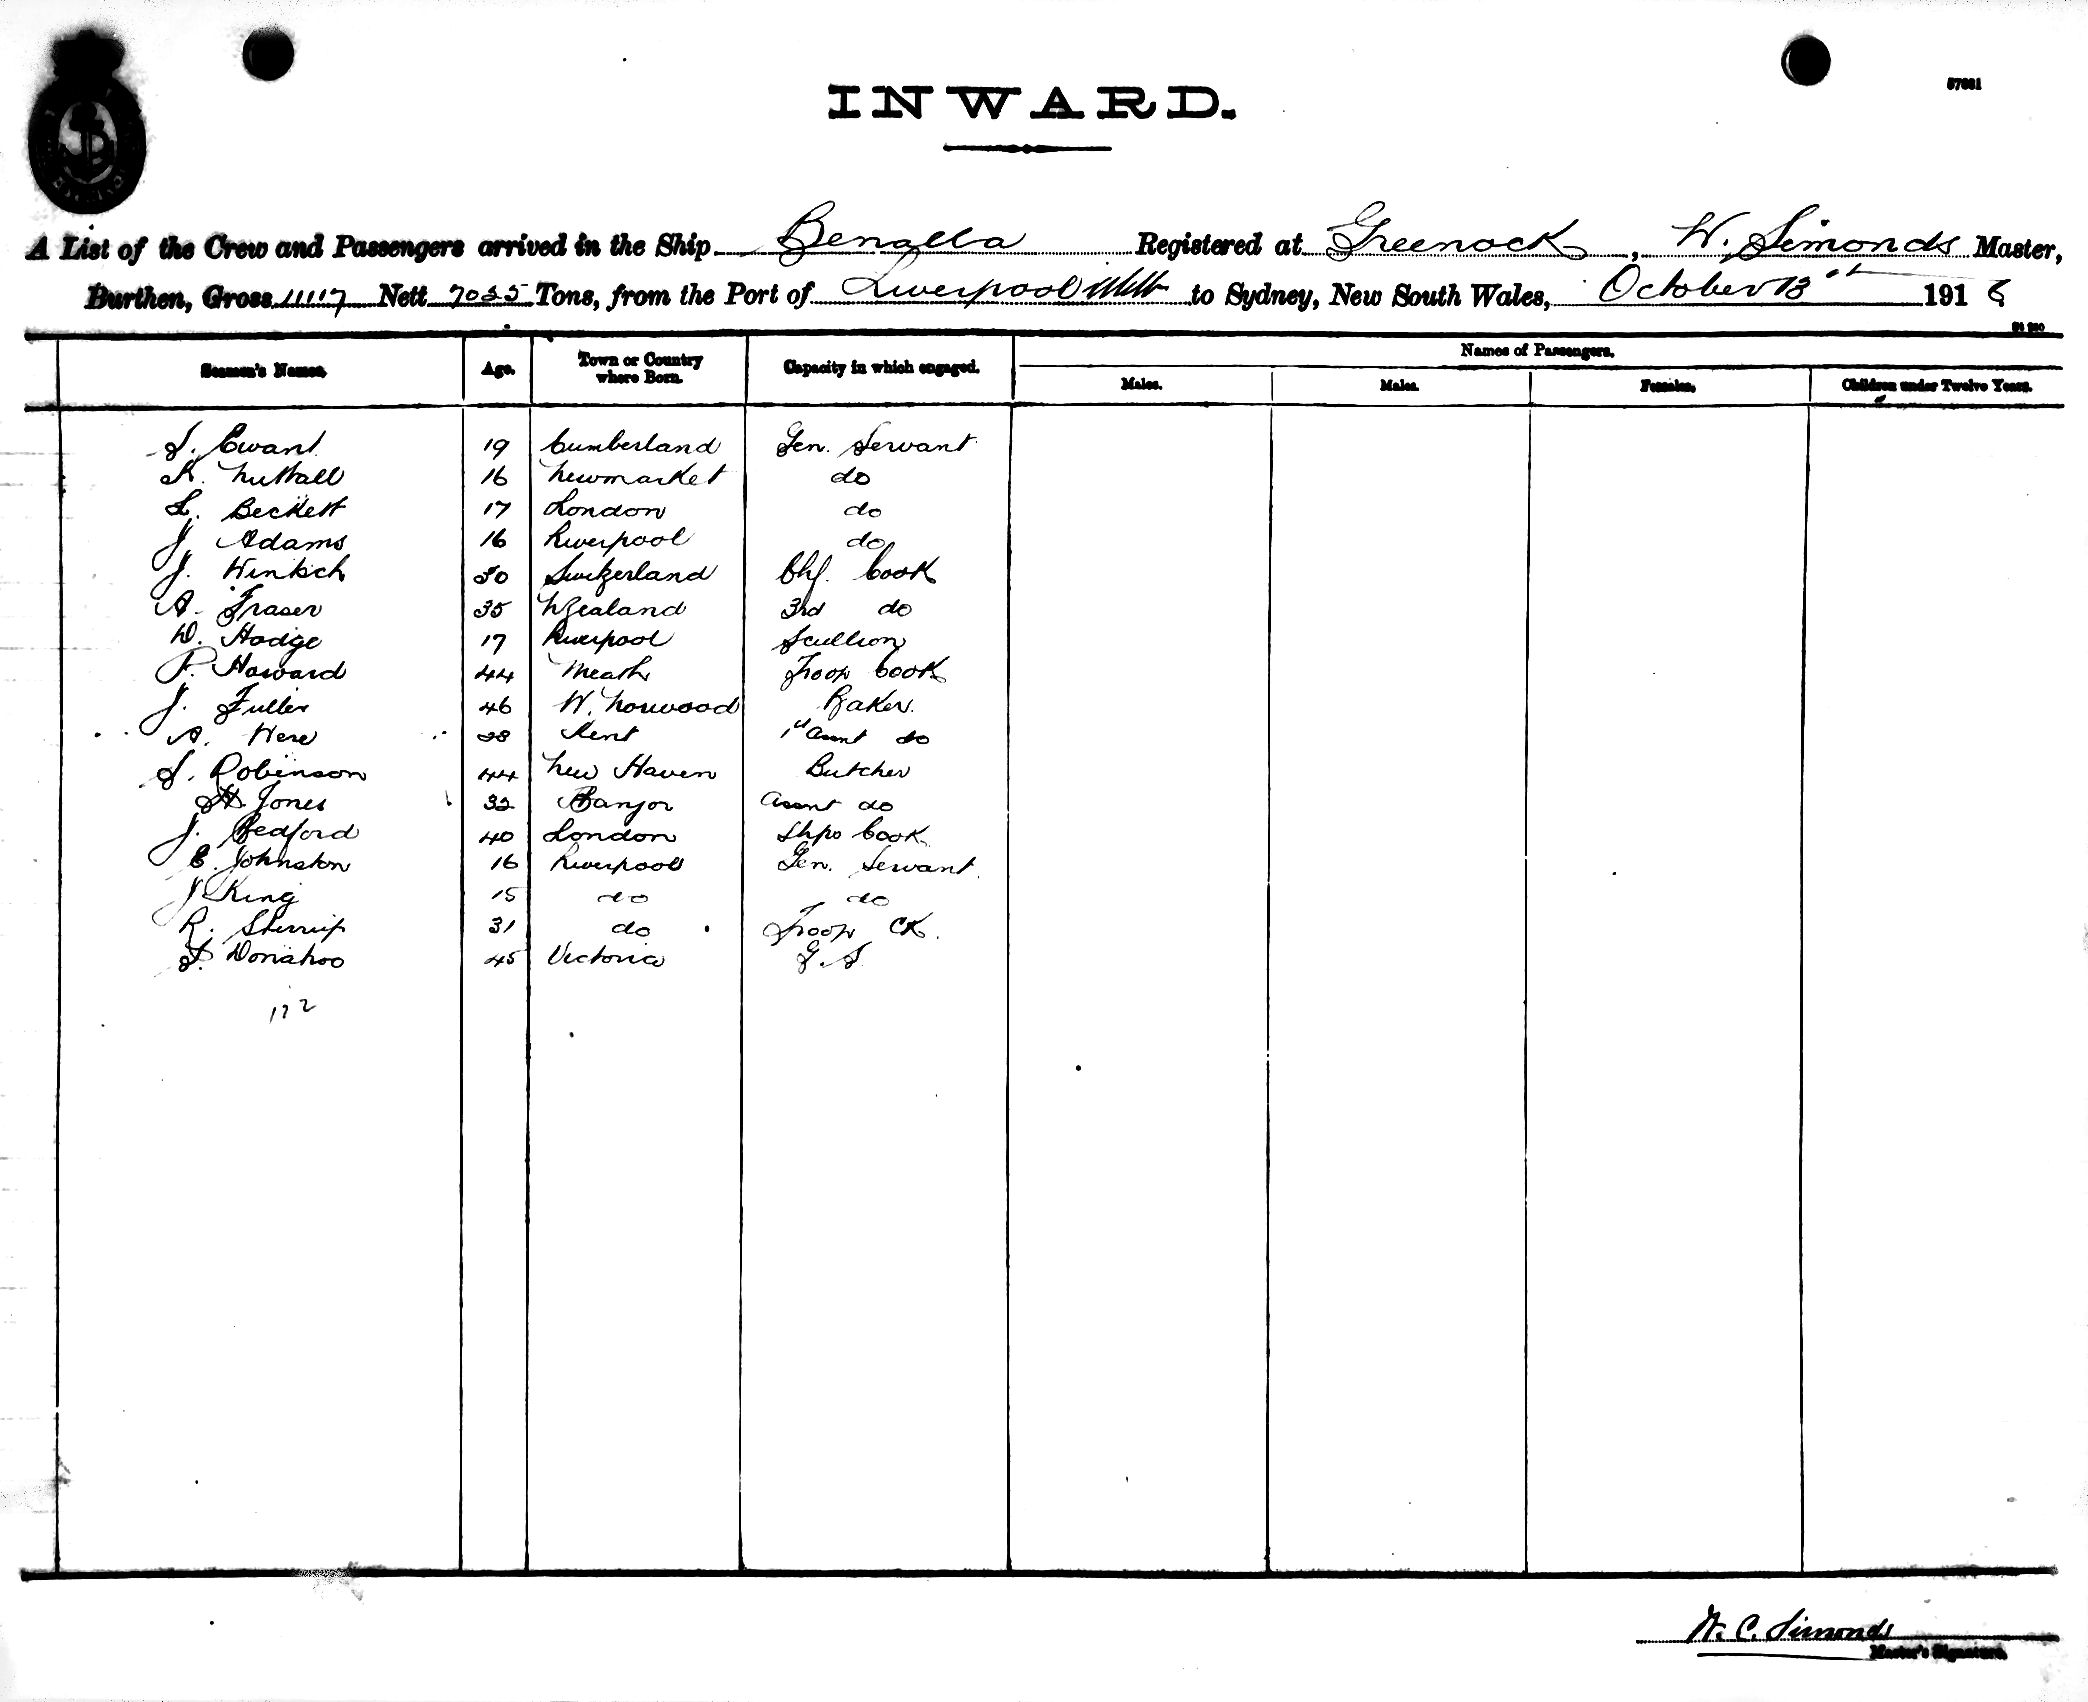 57681
INWARD.
A List of the Crew and Passengers arrived in the Ship Benalla Registered at Greenock, W. Simonds Master,
Burthen, Gross 11117 Nett 7035 Tons, from the Port of Liverpool to Sydney, New South Wales, October 13th 1918
Seamen's Names. Age. Town or Country where Born. Capacity in which engaged. Names of Passengers.
Males. Males. Females. Children under Twelve Years.
19 Cumberland Gen. Servant
K. Nuttall 16 Newmarket do
L. Beckett 17 London do
J. Adams 16 Liverpool do
J. 30 Switzerland Chf. Cook
A. Fraser 35 N Zealand 3rd do
W. Hodge 17 Liverpool Scullion
P. Howard 44 Meath Troop Cook
J. Fuller 46 W. Norwood Baker
A. Here 28 Kent 1st Assnt do
S. Robinson 44 New Haven Butcher
H. Jones 32 Bangor Assnt do
J. Bedford 40 London Shps Cook
E. Johnston 16 Liverpool Gen. Servant
J King 15 do do
R. Stirrup 31 do Troop CK.
Donahoo 45 Victoria G.S
172
W. C. Simonds
Master's Signature.